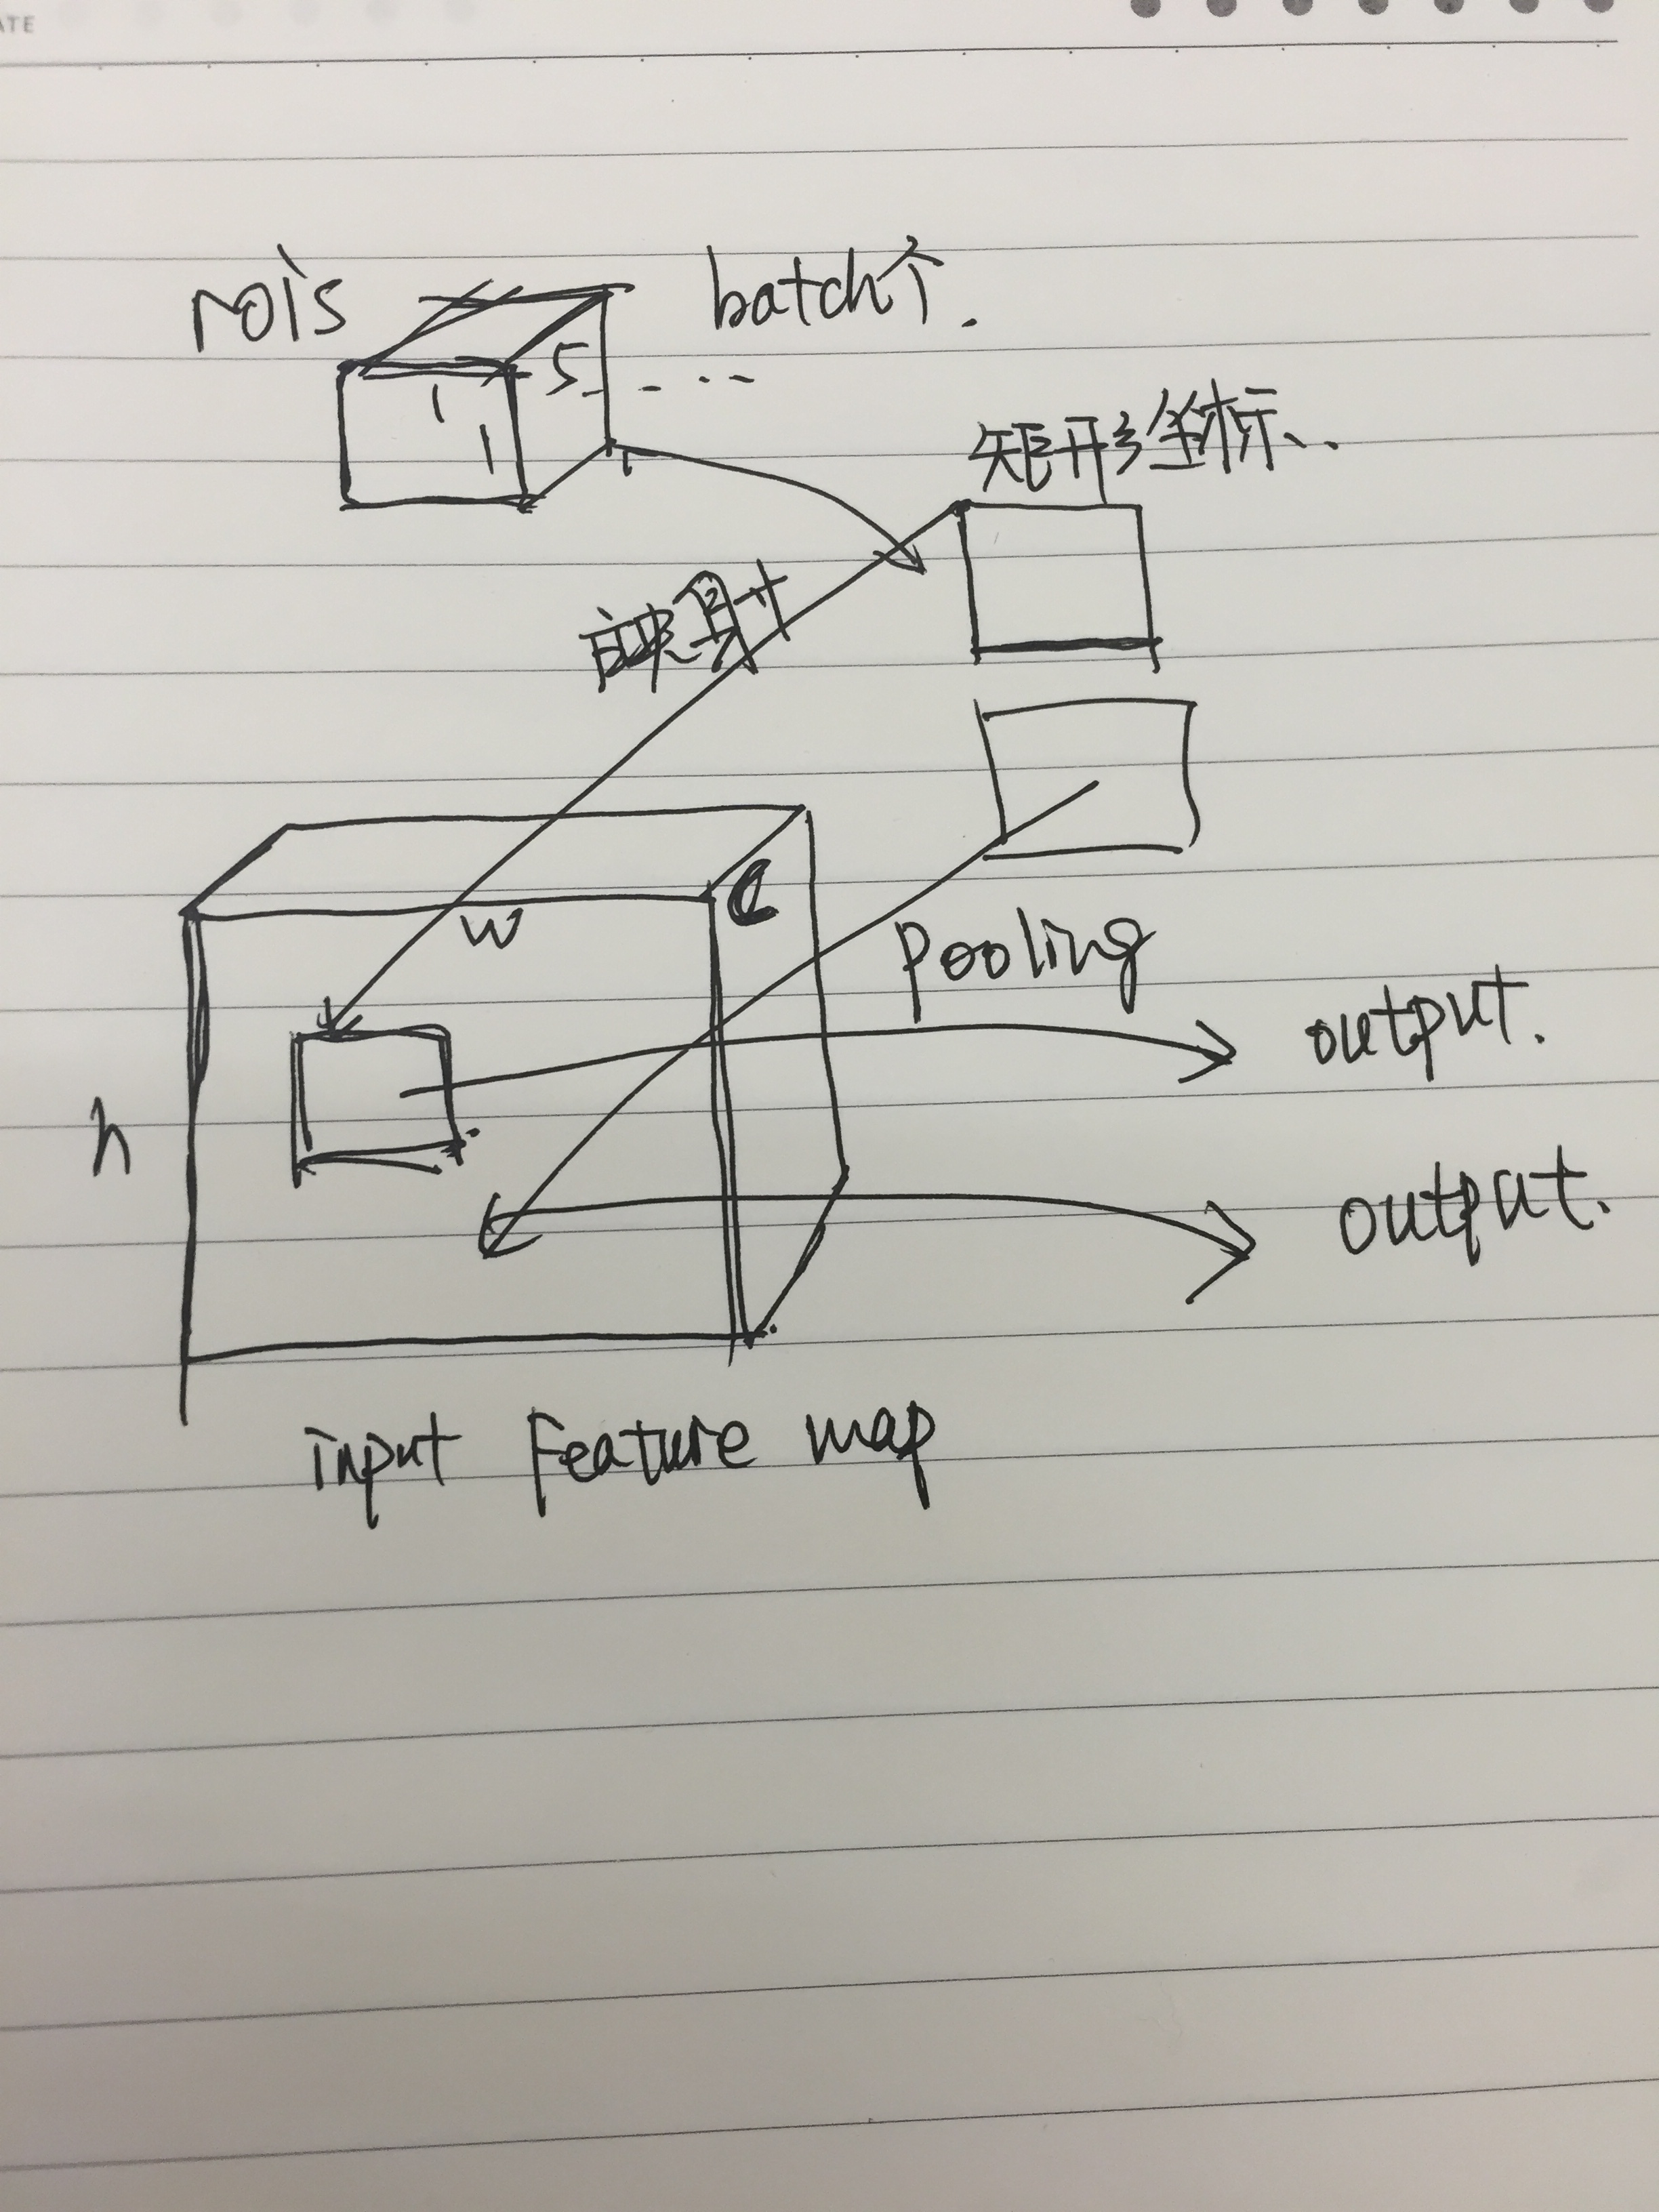 ATE
rois
batch个.
1
5
1
矩形坐标
映射
w
C
Pooling
output.
h
output.
input Feature map